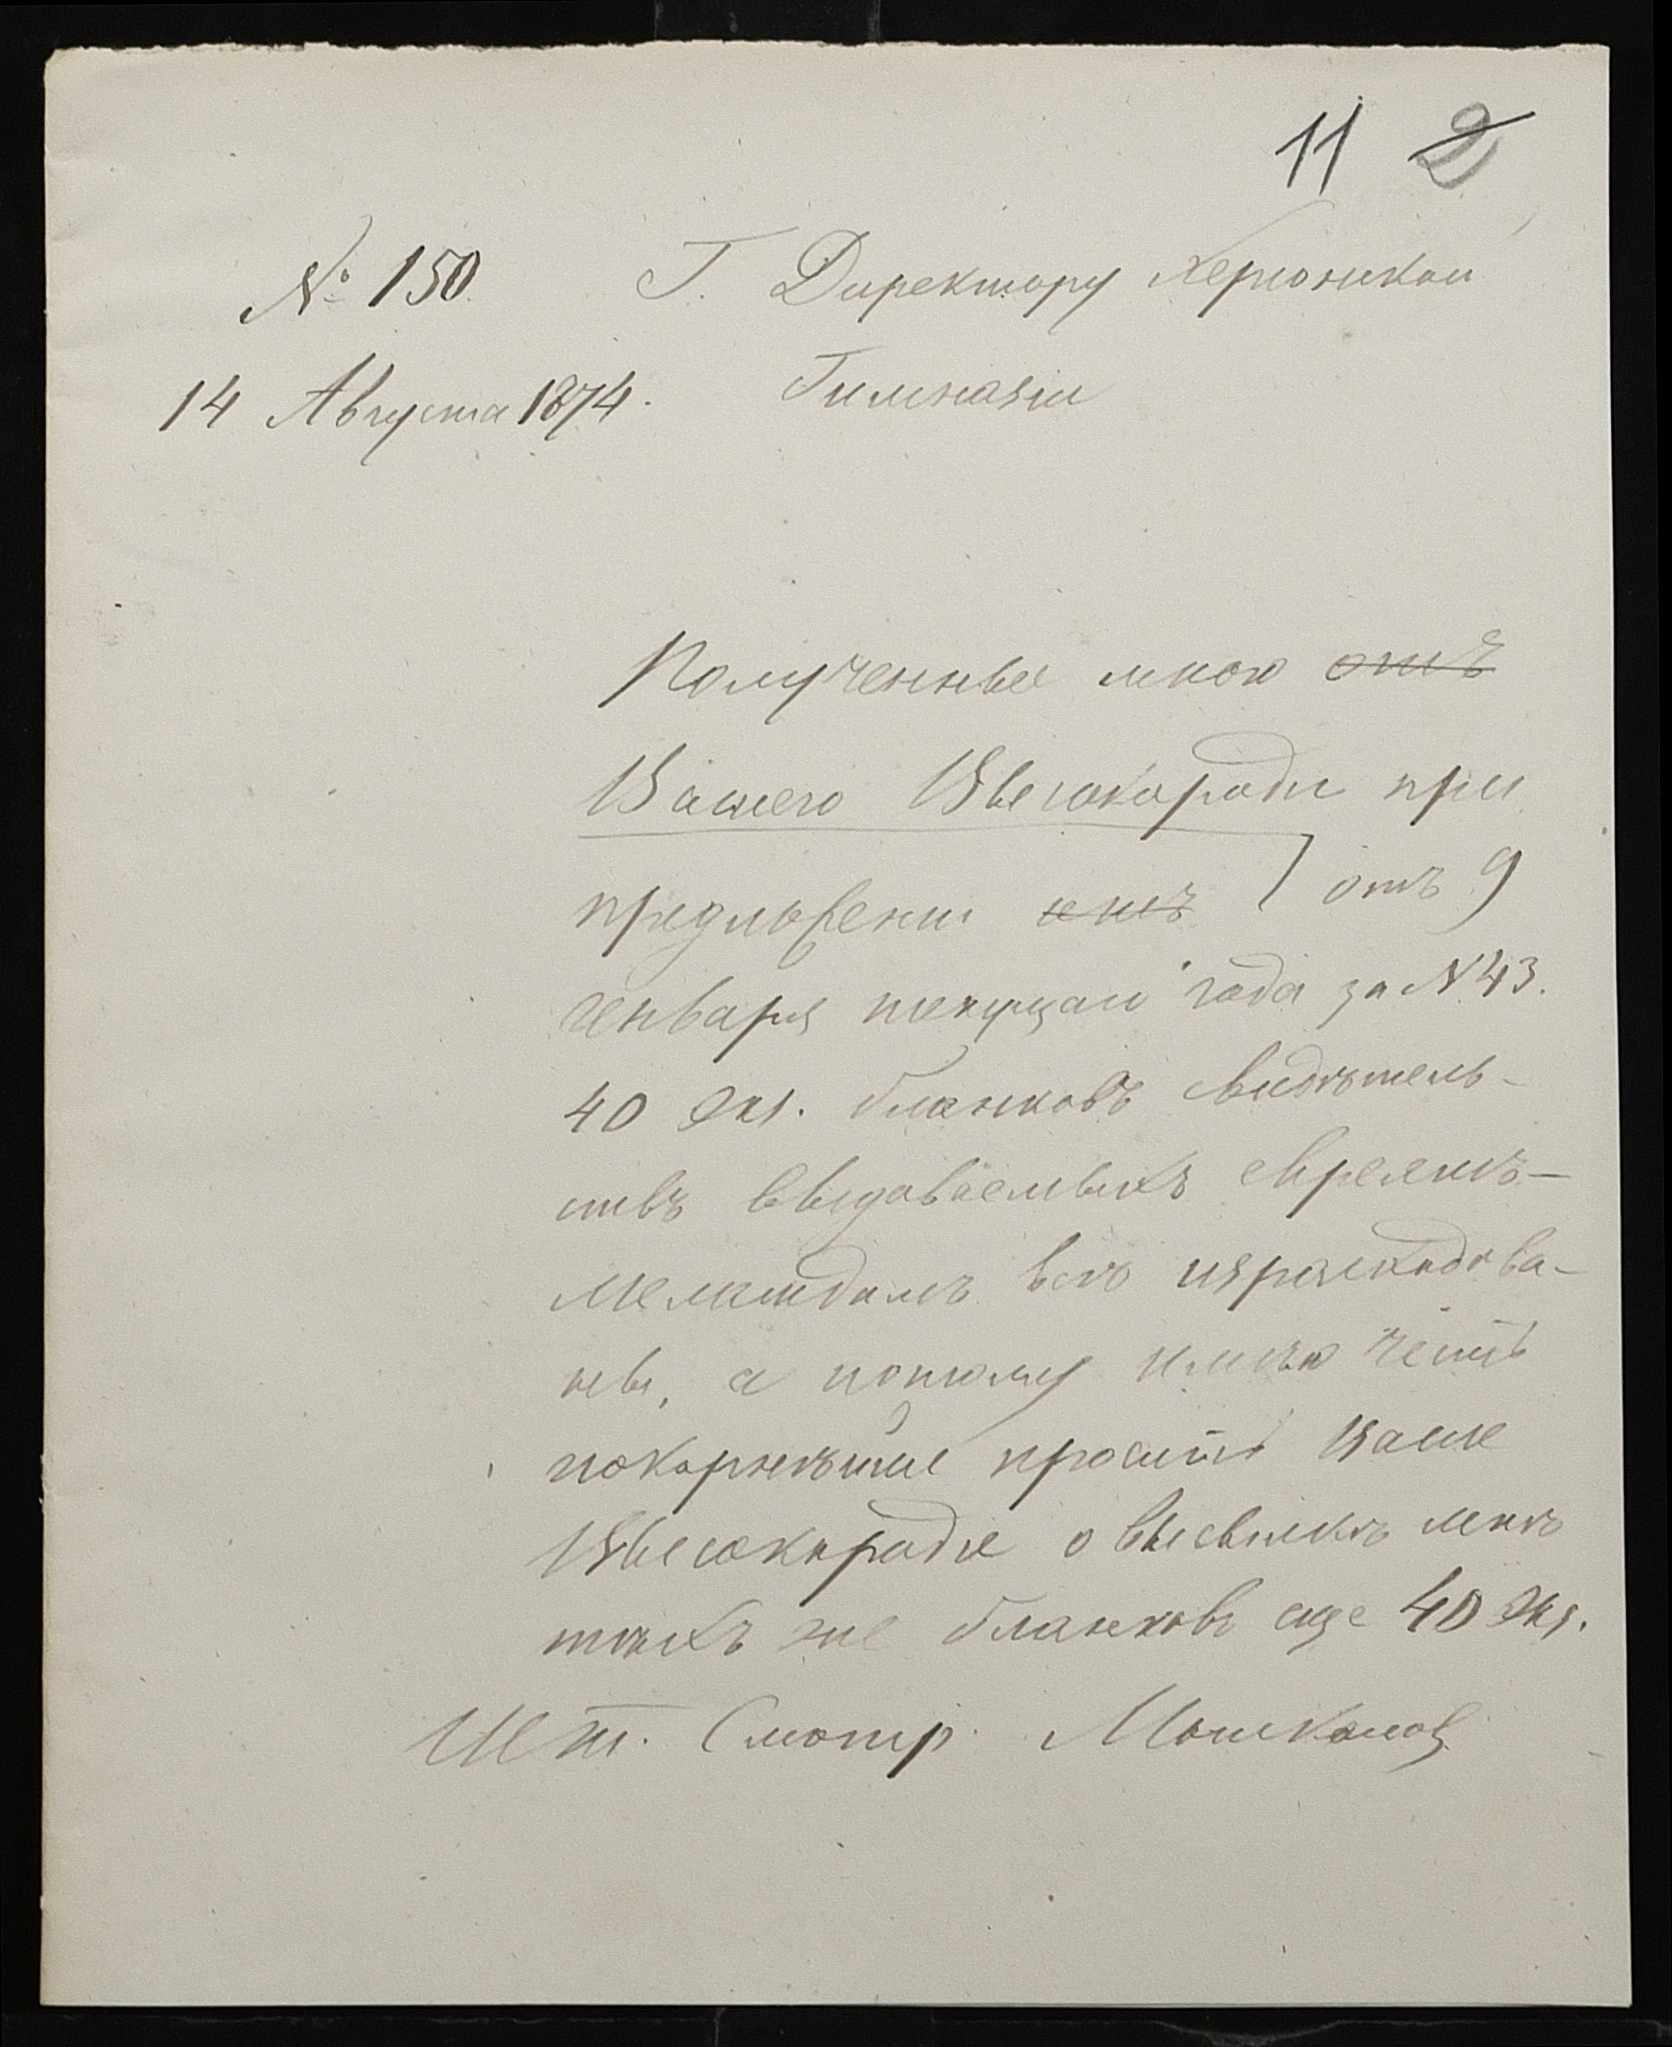 11 2
№ 150 Г. Директору Херсонской
14 Августа 1874. Гимназіи
Полученные мною отъ
Вашего Высокородія при
предложеніи отъ 9
генваря текущаго года за N 43.
40 экз. бланковъ свидѣтель-
ствъ выдаваемыхъ евреямъ-
меламдамъ всѣ израсходова-
ны, а потому имѣю честь
покорнѣйше просить Ваше
Высокородіе о высылкѣ мнѣ
такихъ же бланковъ еще 40 экз.
Шт. Смотр.